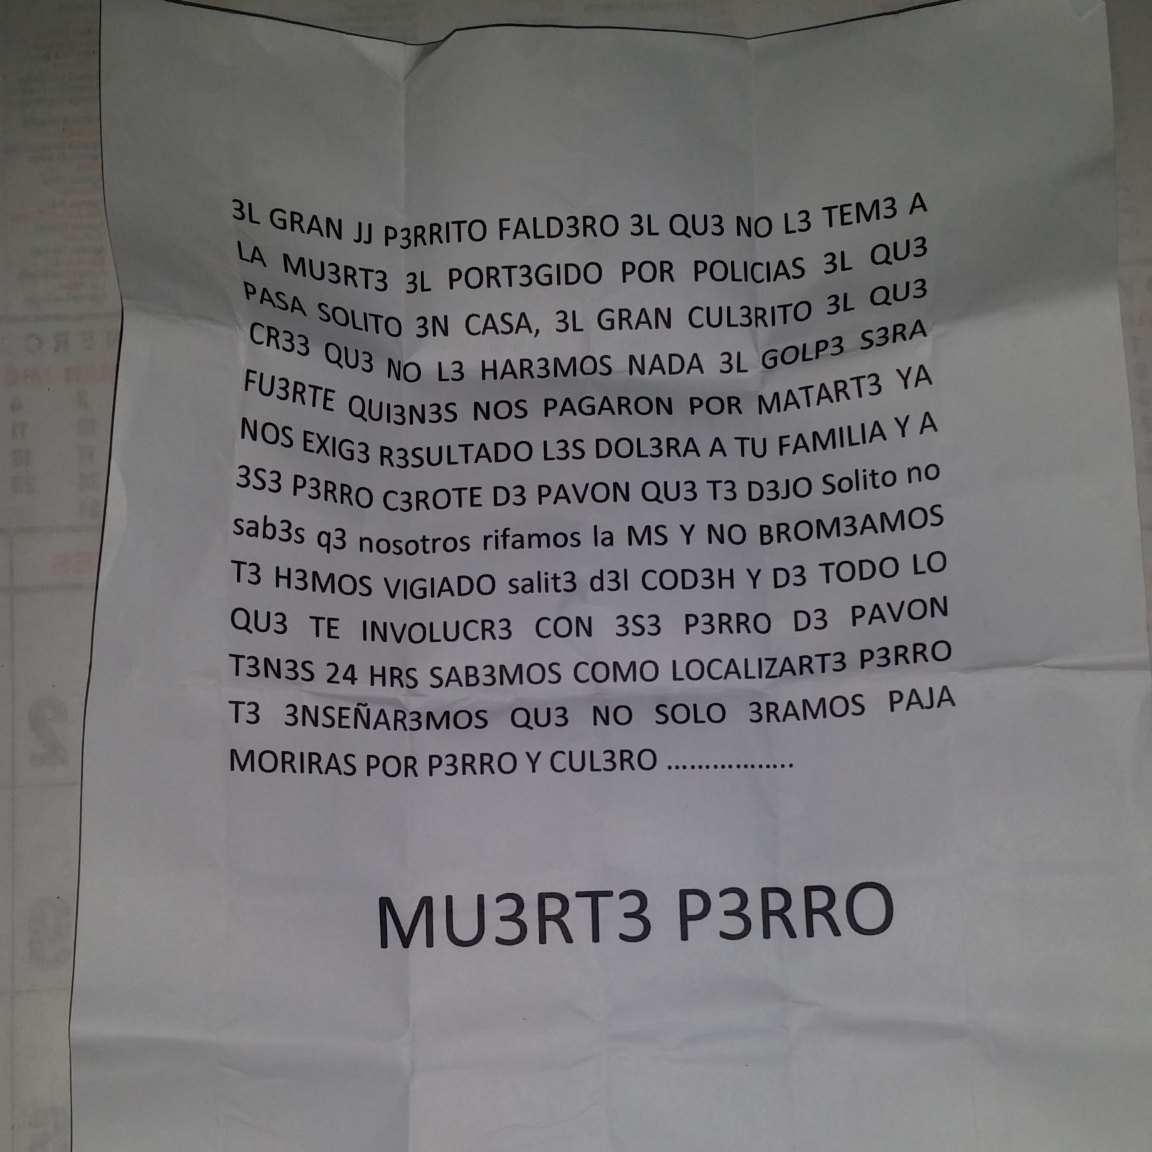 3L GRAN JJ P3RRITO FALD3RO 3L QU3 NO L3 TEM3 A
LA MU3RT3 3L PORT3GIDO POR POLICIAS 3L QU3
PASA SOLITO 3N CASA, 3L GRAN CUL3RITO 3L QU3
CR33 QU3 NO L3 HAR3MOS NADA 3L GOLP3 S3RA
FU3RTE QUI3N3S NOS PAGARON POR MATART3 YA
NOS EXIG3 R3SULTADO L3S DOL3RA A TU FAMILIA Y A
3S3 P3RRO C3ROTE D3 PAVON QU3 T3 D3JO Solito no
sab3s q3 nosotros rifamos la MS Y NO BROM3AMOS
T3 H3MOS VIGIADO salit3 d3l COD3H Y D3 TODO LO
QU3 TE INVOLUCR3 CON 3S3 P3RRO D3 PAVON
T3N3S 24 HRS SAB3MOS COMO LOCALIZART3 P3RRO
T3 3NSEÑAR3MOS QU3 NO SOLO 3RAMOS PAJA
MORIRAS POR P3RRO Y CUL3RO .................
MU3RT3 P3RRO